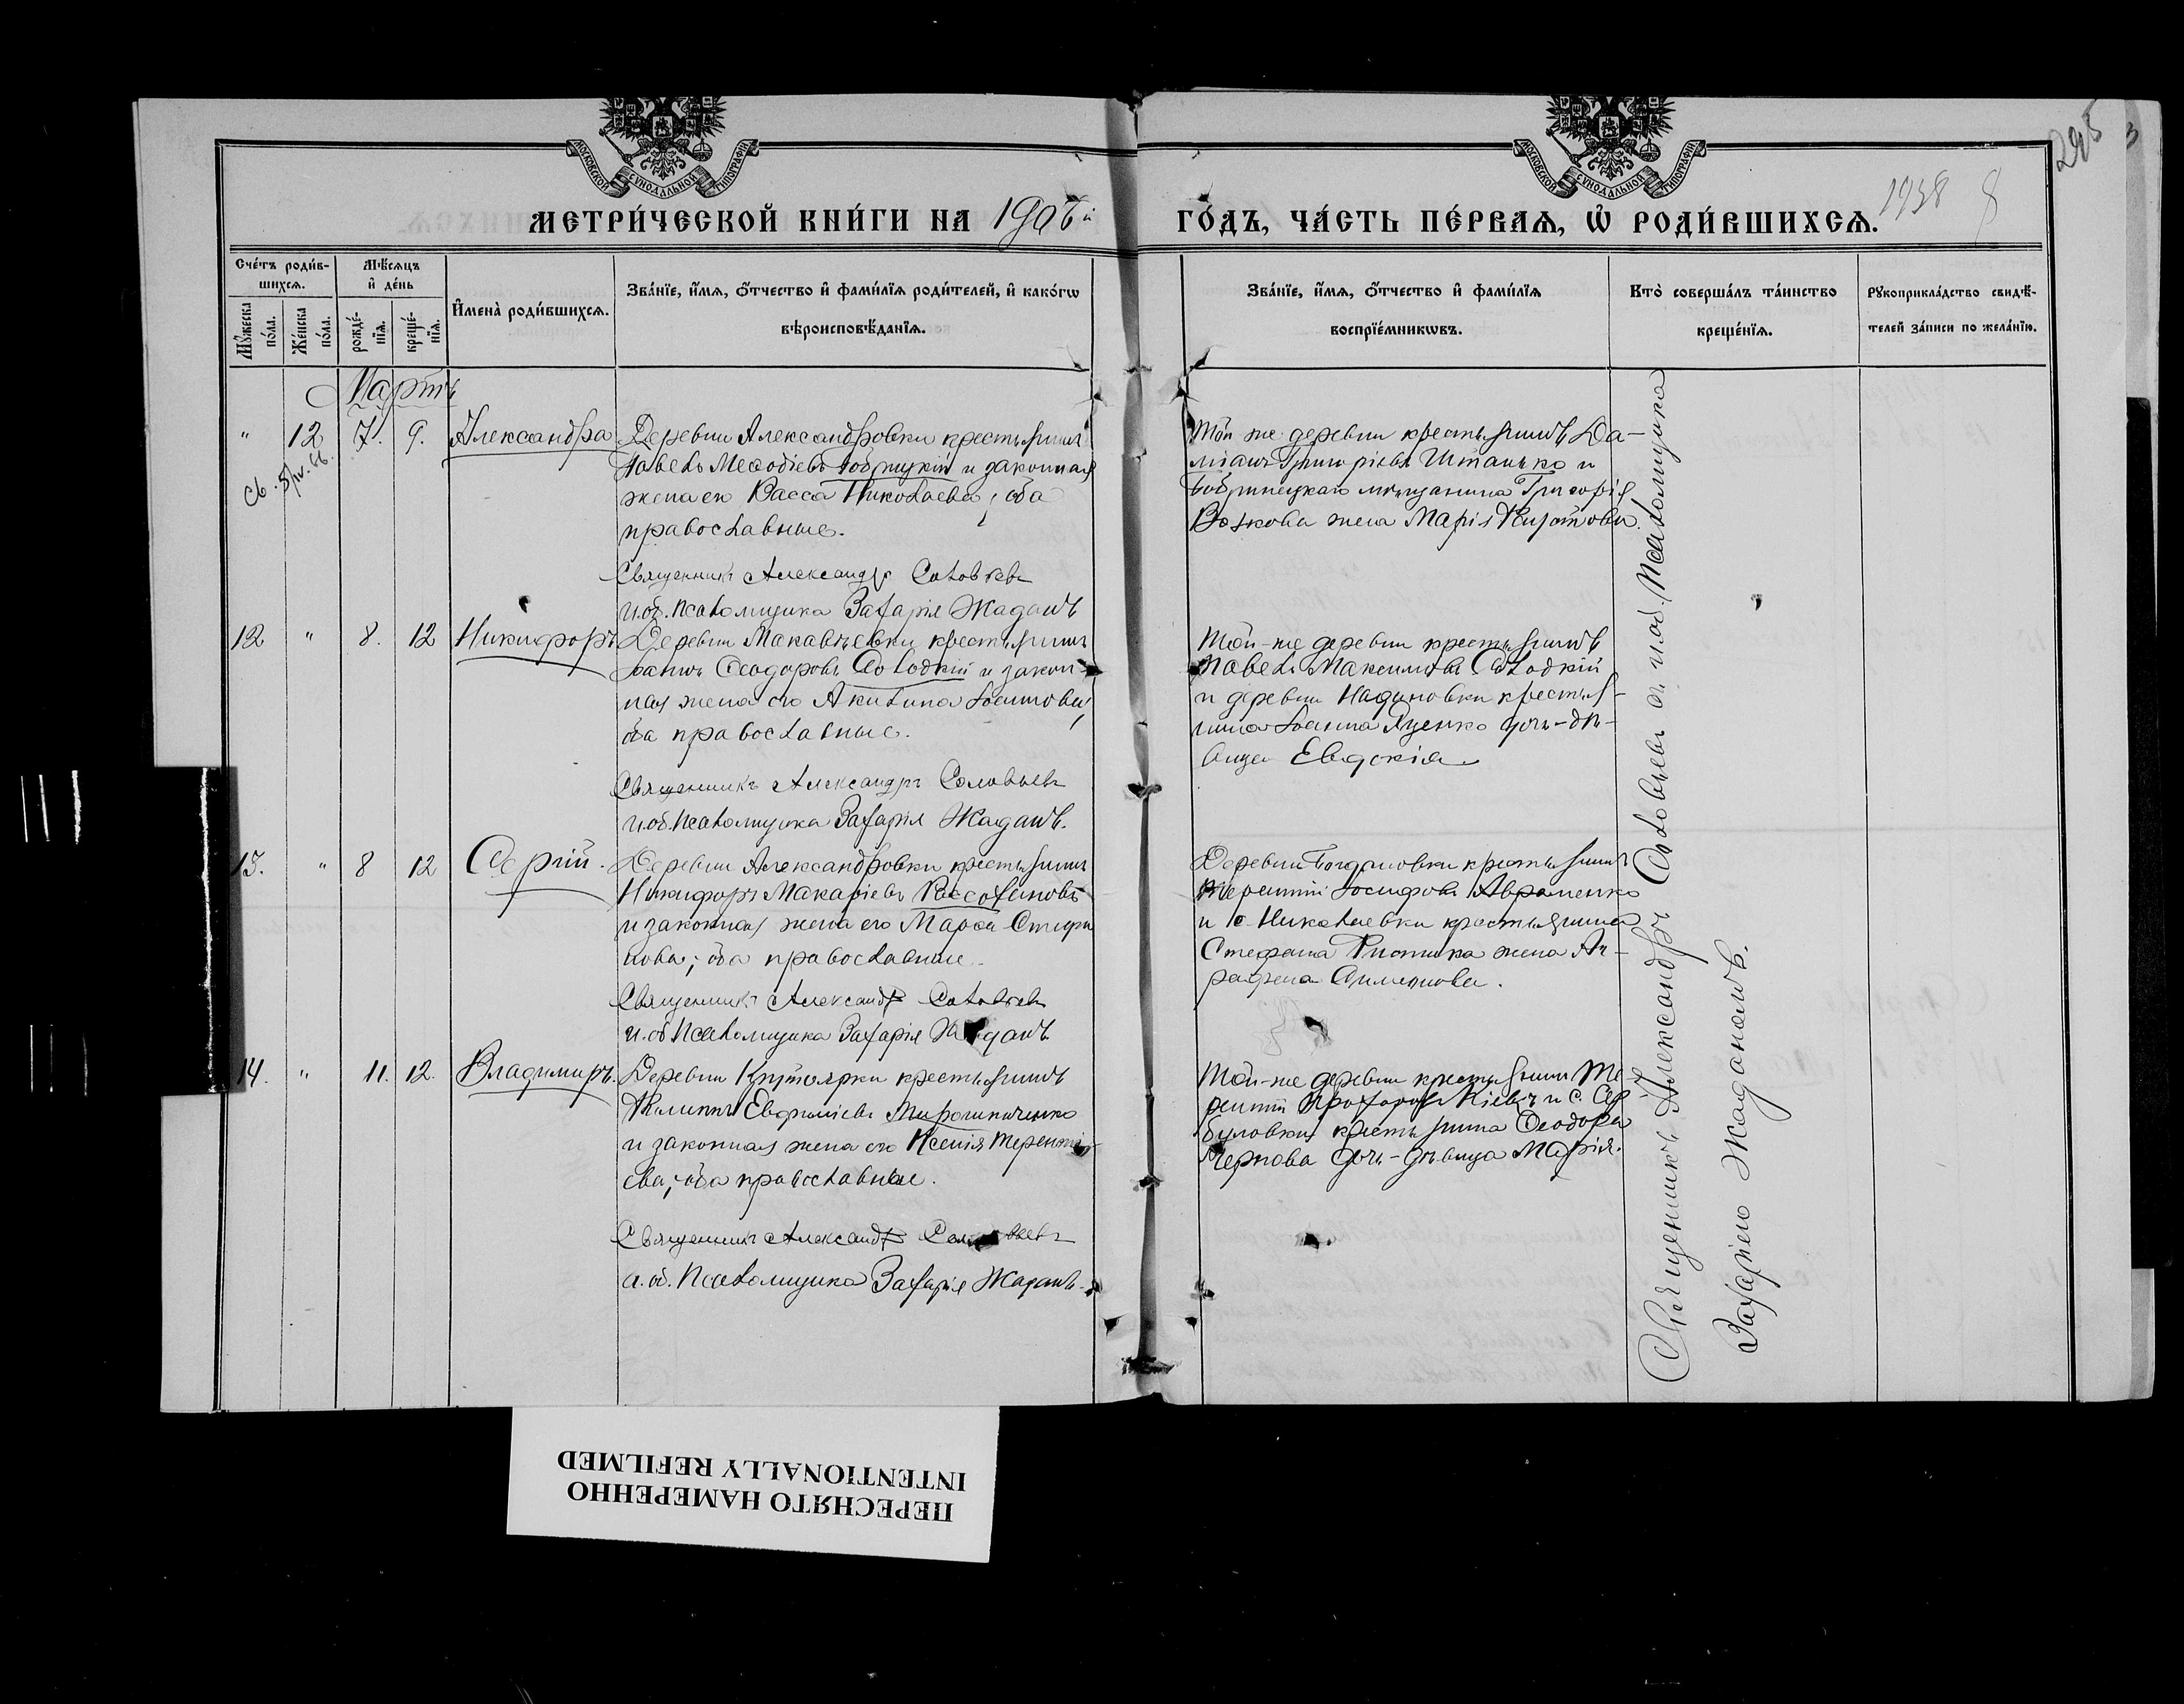 МОСКОВСКОЙ СѴНОДАЛЬНОЙ ТИПОГРАФІИ
МОСКОВСКОЙ СѴНОДАЛЬНОЙ ТИПОГРАФІИ
205
3
1938 8
МЕТРИ́ЧЕСКОЙ КНИ́ГИ НА 1906й
ГО́ДЪ, ЧА́СТЬ ПЕ́РВАѦ, Ѡ҆ РОДИ́ВШИХСѦ.
Сче́тъ роди́в-
шихсѧ.
Мꙋ́жеска по́ла.
Же́нска по́ла.
Мѣ́сѧцъ
и҆ де́нь
рожде́-нїѧ.
креще́-нїѧ.
И҆мена̀ роди́вшихсѧ.
Зва́нїе, и҆́мѧ, ѻ҆́тчество и҆ фами́лїѧ роди́телей, и҆ како́гѡ
вѣроисповѣ́данїѧ.
Зва́нїе, и҆́мѧ, ѻ҆́тчество и҆ фами́лїѧ
воспрїе́мникѡвъ.
Кто̀ соверша́лъ та́инство
креще́нїѧ.
Рꙋкоприкла́дство свидѣ́-
телей за́писи по жела́нїю.
Мартъ
" 12 7. 9. Александра
Деревни Александровки крестьянинъ
Павелъ Меѳодіевъ Бобрицкій и законная
жена его Васса Николаева; оба
православные.
Священникъ Александръ Соловьевъ
и.об. псаломщика Захарія Жаданъ
Той же деревни крестьянинъ Да-
міанъ Григорьевъ Штанько и
Бобринецкаго мѣщанина Григорія
Волкова жена Марія
12 " 8. 12 Никифоръ
Деревни Макавѣевки крестьянинъ
Іоаннъ Ѳеодоровъ Солодкій и закон-
ная жена его Акилина
оба православные.
Священникъ Александръ Соловьевъ
и.об. псаломщика Захарія Жаданъ.
Той-же деревни крестьянинъ
Павелъ Максимовъ Солодкій
и деревни крестья-
нина Іоанна Яценко дочь-дѣ-
вица Евдокія
13. " 8 12 Сергій.
Деревни Александровки крестьянинъ
Никифоръ Макаріевъ
и законная жена его Марѳа
оба православные
Священникъ Александръ Соловьевъ
и.об псаломщика Захарія Жаданъ
Деревни Богдановки крестьянинъ
Терентій Іосифовъ Авраменко
и с. Николаевки крестьянина
Стефана жена Аг-
рафена
14. " 11. 12. Владимиръ.
Деревни Крутоярки крестьянинъ
Филиппъ Евфиміевъ Мирошниченко
и законная жена его Ксенія Терентіе-
ва; оба православные.
Священникъ Александръ Соловьевъ
и.об. псаломщика Захарія Жаданъ
Той-же деревни крестьянинъ Те-
рентій Прохоровъ и с. Сер-
буловки крестьянина Ѳеодора
Чернова дочь-дѣвица Марія.
Священникъ Александръ Соловьевъ съ и.об. псаломщика
Захаріею Жаданомъ.
ПЕРЕСНЯТО НАМЕРЕННО
INTENTIONALLY REFILMED